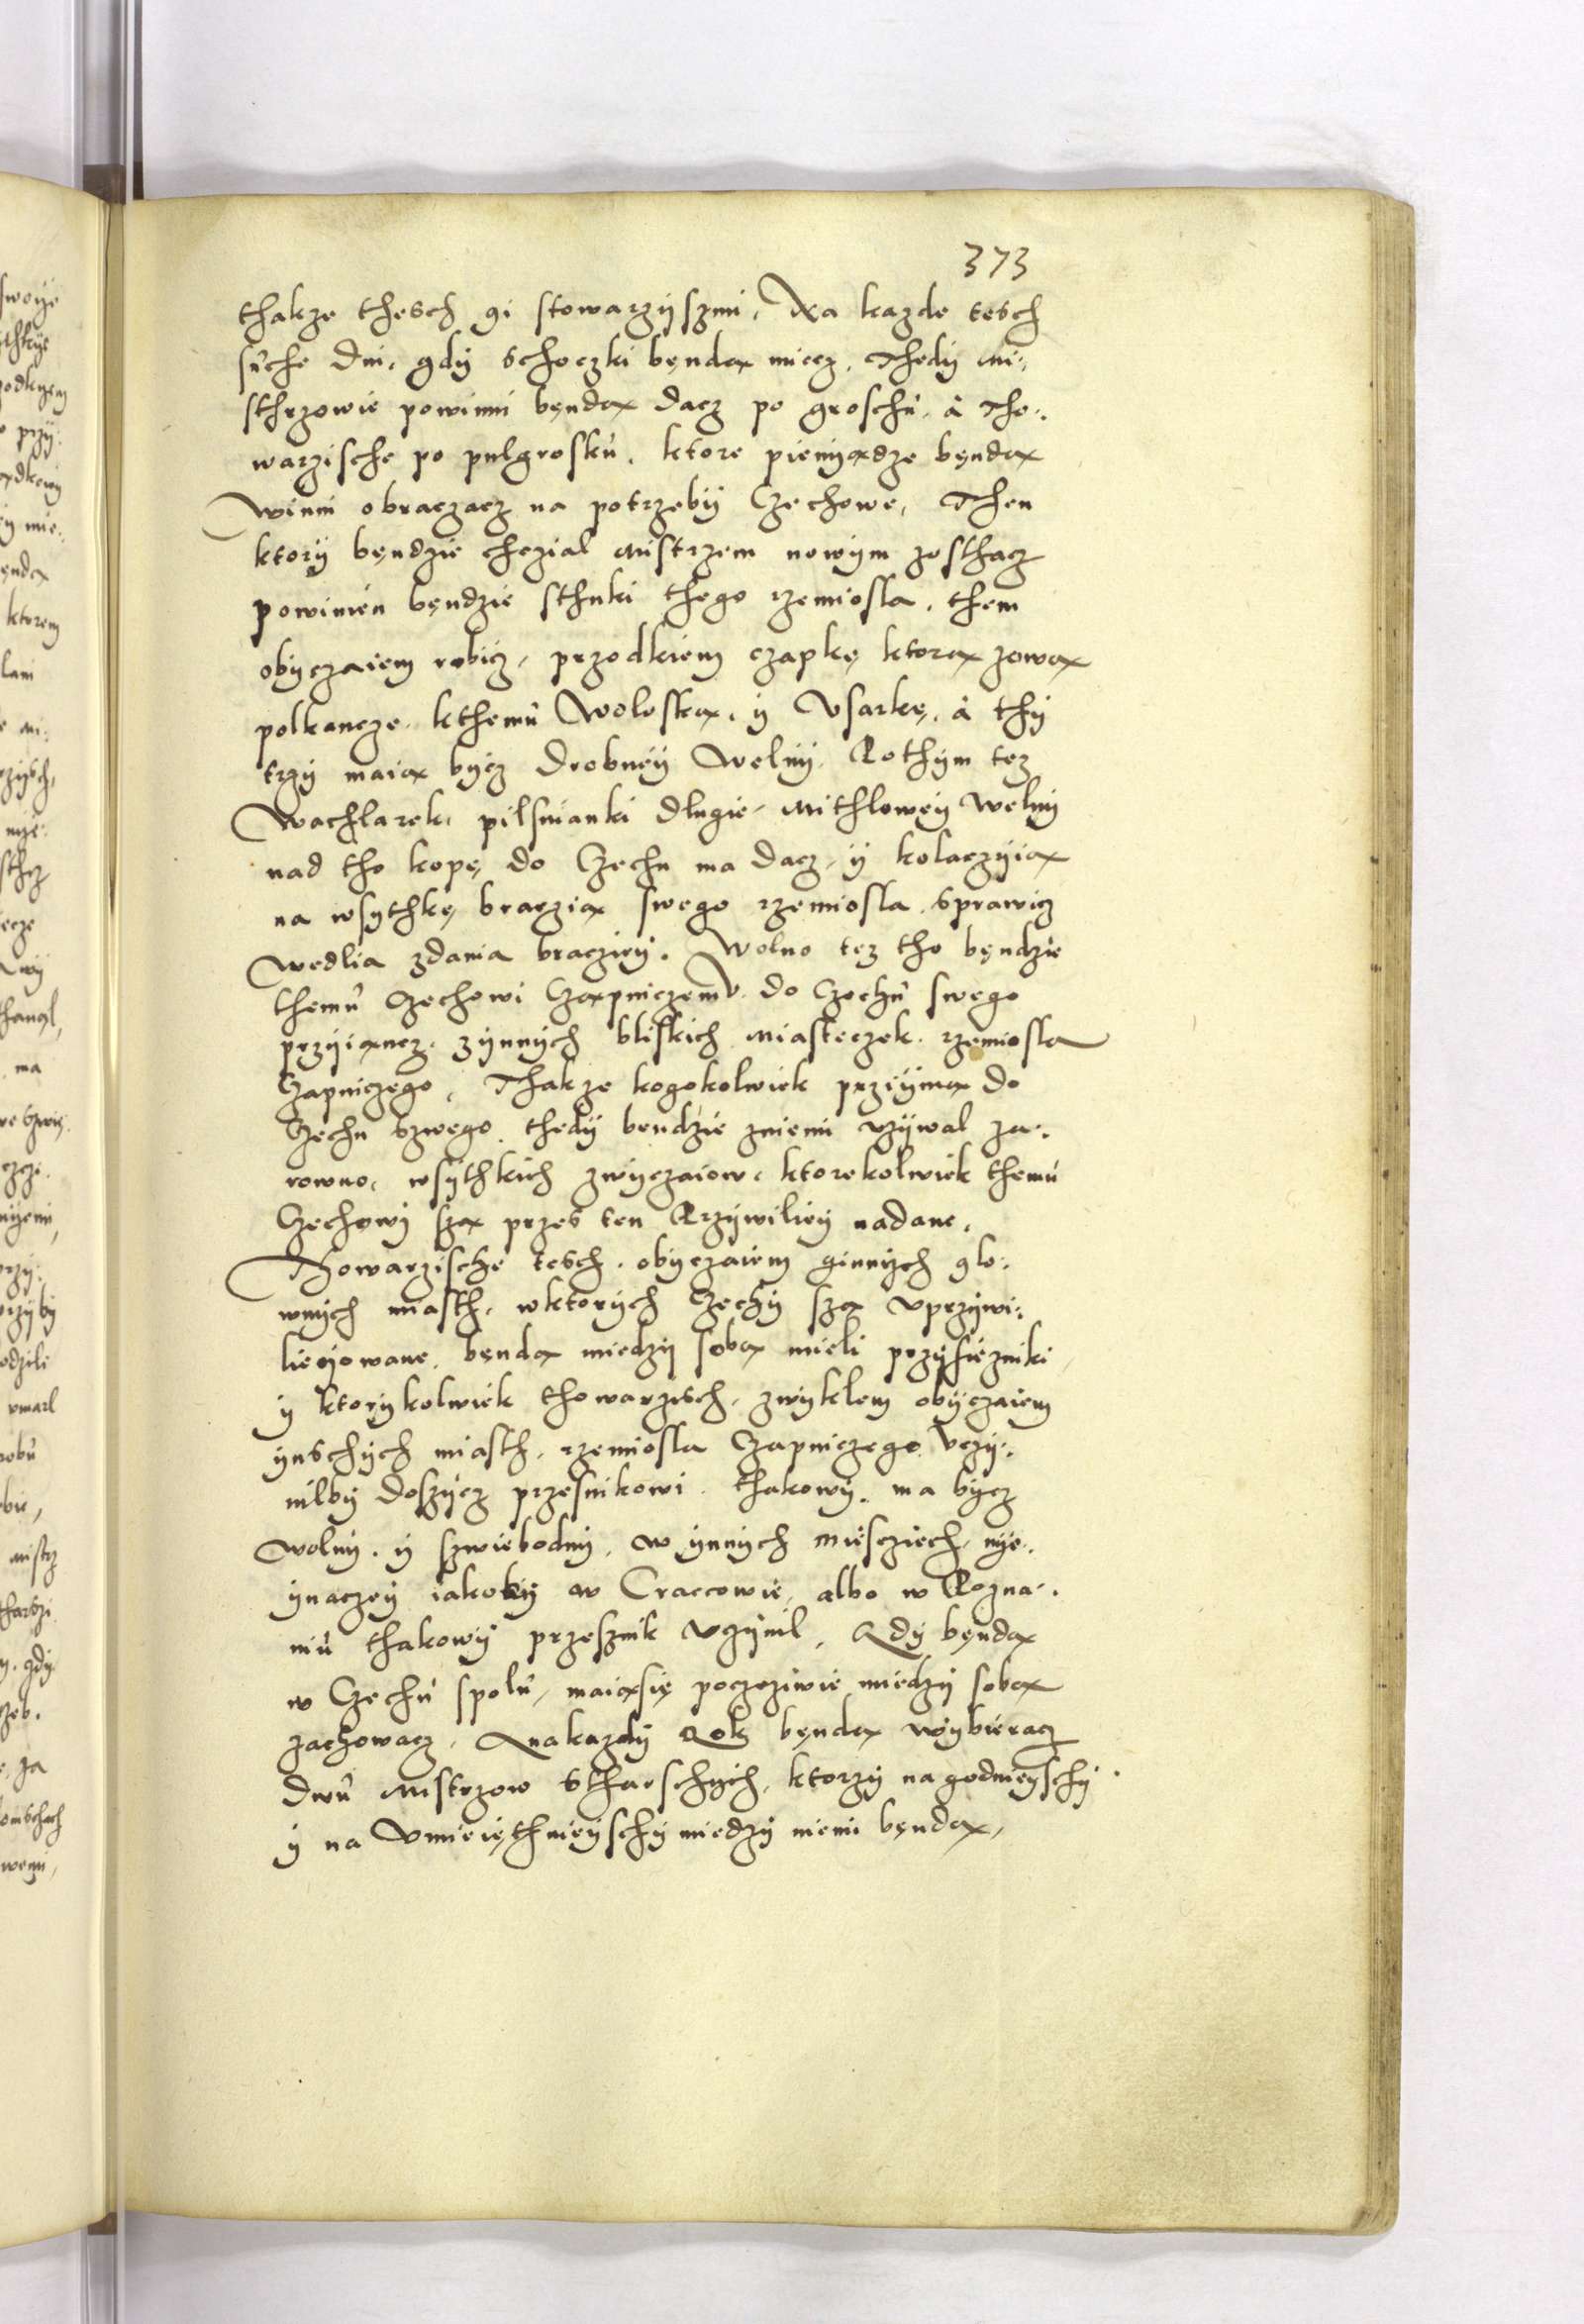 373
thakze thesch gi stowarzÿszmi, Na kazde tesch
sůche Dni, gdÿ schoczki bęndą miecz, Thedÿ mi:
sthrzowie powinni bęndą dacz po groschů, à Tho:
warzische po pulgrosků, ktore pieniądze bęndą
winni obraczacz na potrzebÿ Czechowe, Then
ktorÿ bęndzie chczial Mistrzem nowÿm zosthacz
powinien bęndzie sthuki thego rzemiosla, them
obÿczaiem robicz, przodkiem czapkę ktorą zową
polkancze, kthemů Woloską, ÿ Vsarkę, à thÿ
trzÿ maią bÿcz drobneÿ Welnÿ, Pothÿm tez
Wachlarek, pilsnianki dlugie, Mithloweÿ Welnÿ
nad tho kopę do Czechu ma dacz, ÿ kolaczÿią
na wsÿthkę braczią swego rzemiosla sprawicz
wedlia zdania braczieÿ. Wolno tez tho bęndzie
themů Czechowi Czapniczemv do Czechů swego
przÿiąncz, zÿnnÿch bliskich Miasteczek, rzemiosla
Czapniczego, Thakze kogokolwiek prziÿmą do
Czechu szwego, thedÿ bendzie zniemi vzÿwal za:
rowno, wsÿthkich zwÿczaiow, ktorekolwiek themů
Czechowÿ szą przes ten Przÿwilieÿ nadane,
Thowarzische tesch, obÿczaiem ginnÿch glo:
wnÿch miasth, wktorÿch Czechÿ szą vprzÿwi:
lieiowane, bęndą miedzÿ sobą mieli przÿsiezniki
ÿ ktorÿkolwiek thowarzisch, zwÿklem obÿczaiem
ÿnschÿch miasth, rzemiosla Czapniczego vczÿ:
nilbÿ doszÿcz przesnikowi, thakowÿ, ma bÿcz
wolnÿ, ÿ szwiebodnÿ, w ÿnnÿch miesciech, nÿe:
ÿnaczeÿ iakobÿ w Craccowie, albo w Pozna:
niů thakowÿ przesznik vczÿnil, Gdÿ bęndą
w Czechů spolů, maiąsię poczcziwie miedzÿ sobą
zachowacz, A nakazdÿ Rok bęndą wÿbieracz
dwů Mistrzow stharschÿch, ktorzÿ nagodnieÿschÿ
ÿ na vmieięthnieÿschÿ miedzÿ niemi bęndą,